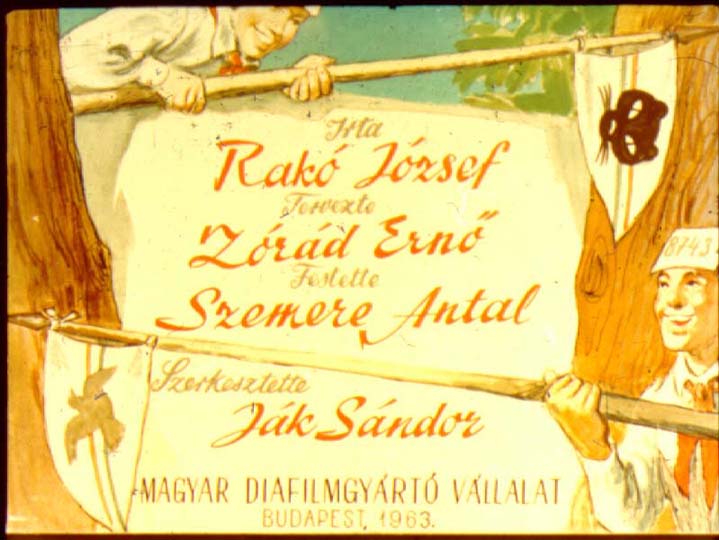 Irta
Rakó József
Tervezte
Zórád Ernő
Festette
Szemere Antal
8743
Szerkesztette
Ják Sándor
MAGYAR DIAFILMGYÁRTÓ VÁLLALAT
BUDAPEST, 1963.